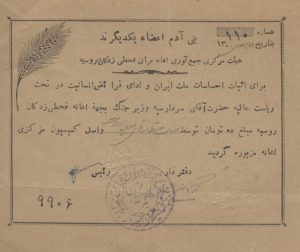 نمره ۱۱۰
بتاریخ
بنی آدم اعضاء یکدیگرند
هیئت مرکزی جمع آوری اعانه برای قحطی زدگان روسیه
برای اثبات احساسات ملت ایران و ادای فرائض انسانیت در تحت
ریاست عالیه حضرت آقای سردار سپه وزیر جنگ بجهة اعانه قحطی زدگان
روسیه مبلغ ده تومان توسط واصل کمیسیون مرکزی
اعانه مزبوره گردید
دفتر دار رئیس
۹۹۰۶